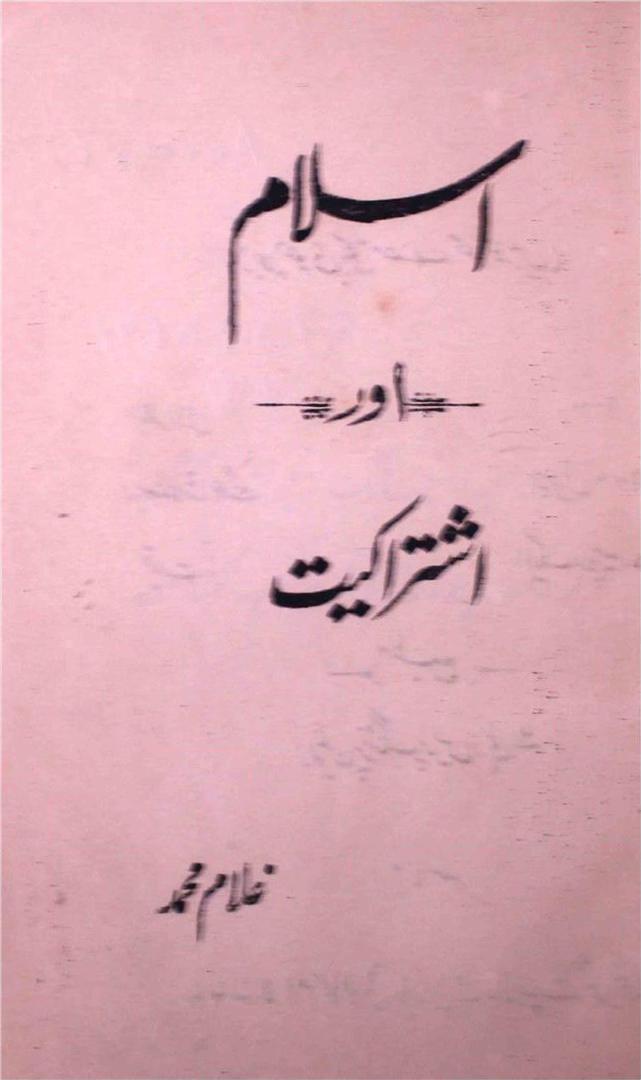 اسلام
اور
اشتراکیت
غلام محمد